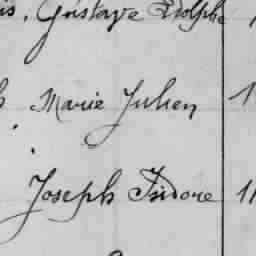 is, Gustave Adolphe
h Marie Julien 1
Joseph Isidore 11